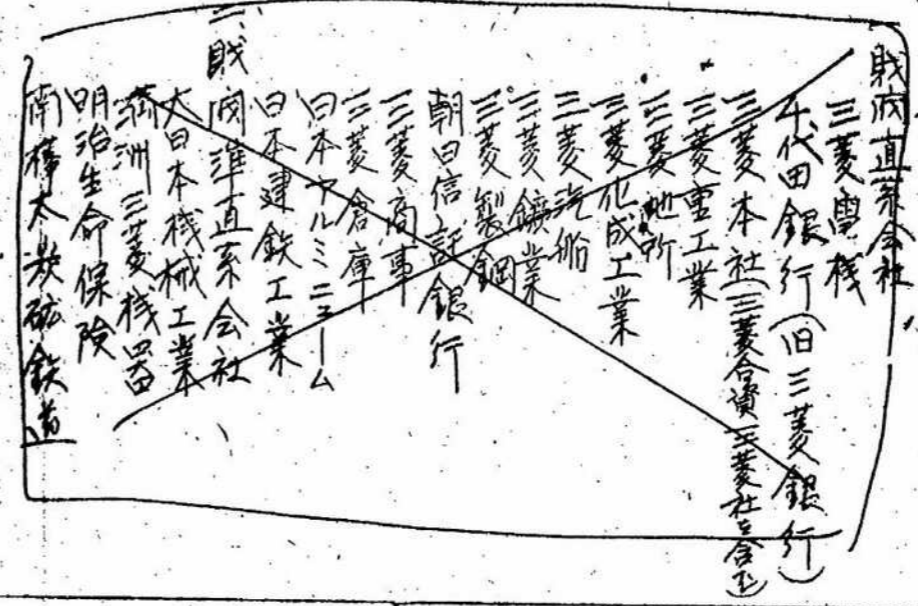 財閥直系会社
三菱電機
千代田銀行(旧三菱銀行)
三菱本社(三菱合資三菱社ヲ含ム)
三菱重工業
三菱地所
三菱化成工業
三菱汽船
三菱鑛業
三菱製鋼
朝日信託銀行
三菱商事
三菱倉庫
日本アルミニューム
日本建鉄工業
二、財閥準直系会社
大日本機械工業
満洲三菱機器
明治生命保険
南樺太炭砿鉄道